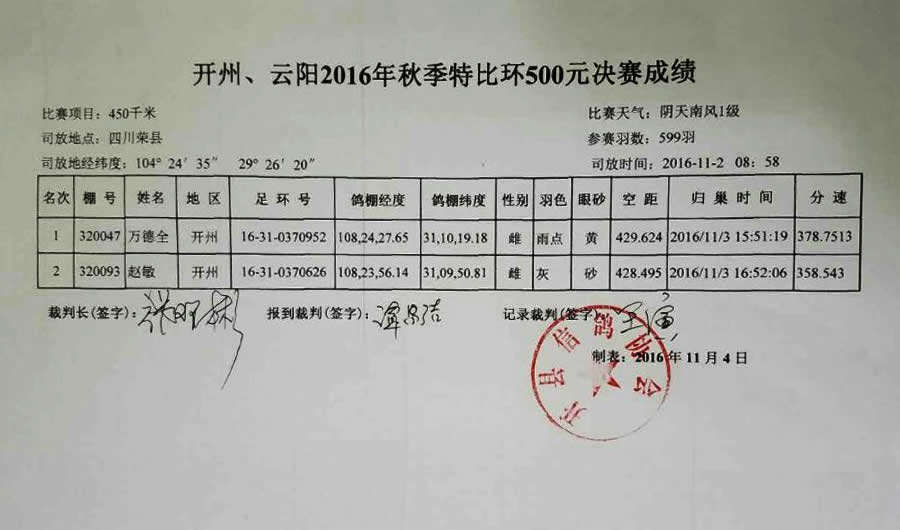 开州、云阳2016年秋季特比环500元决赛成绩
比赛项目：450千米 比赛天气：阴天南风1级
司放地点：四川荣县 参赛羽数：599羽
司放地经纬度：104° 24′ 35″ 29° 26′ 20″ 司放时间：2016-11-2 08：58
名次 棚号 姓名 地区 足环号 鸽棚经度 鸽棚纬度 性别 羽色 眼砂 空距 归巢时间 分速
1 320047 万德全 开州 16-31-0370952 108,24,27.65 31,10,19.18 雌 雨点 黄 429.624 2016/11/3 15:51:19 378.7513
2 320093 赵敏 开州 16-31-0370626 108,23,56.14 31,09,50.81 雌 灰 砂 428.495 2016/11/3 16:52:06 358.543
裁判长(签字)： 报到裁判(签字)： 记录裁判(签字)：
制表：2016年11月4日
开县信鸽协会